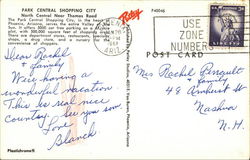 PARK CENTRAL SHOPPING CITY
North Central Near Thomas Road
The Park Central Shopping City, in the heart of
Phoenix, Arizona, serves the entire Valley of the
Sun. It offers 5000 car free parking on a
with 500,000 square feet of shopping area.
There are department stores, restaurants, specialty
shops, a drug store, and a nursery for the
convenience of shoppers.
Dear Rachel
& family
We're having a
wonderful vacation
This is real nice
country. See you soon
Love
Blanch
Plastichrome®
Petley
P40046
PM
USE
ZONE
NUMBERS
POST CARD
Mrs Rachel
& family
48 Amherst St
Nashua
N.H.